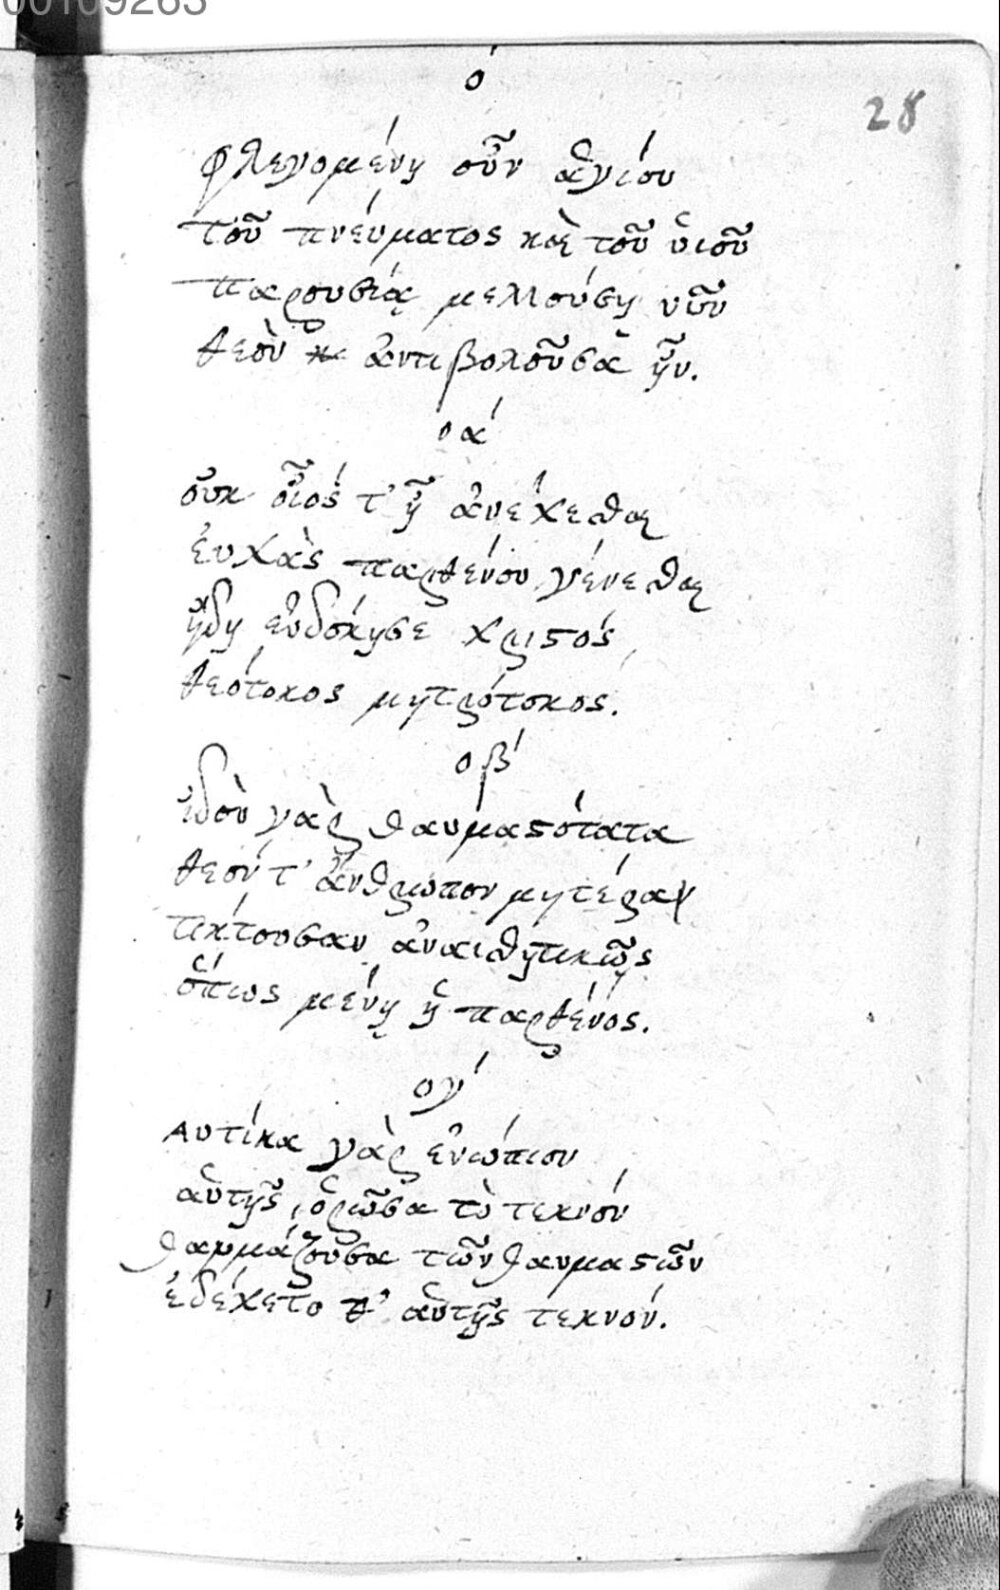 00109263
ό
28
φλεγομένη οὖν ἁγίου
τοῦ πνεύματος καὶ τοῦ ὑιοῦ
παρουσίᾳ μελλούση νῦν
θεὸν ἀντιβολοῦσα ἦν.
οα΄
οὔκ οἷός τ' ἦ ἀνέχεσθαι
ἐυχὰς παρθένου γένεσθαι
ἤδη εὐδόκησε χριστός
θεότοκος μητρότοκος.
οβ΄
ἰδοὺ γὰρ θαυμαστότατα
θεόν τ' ἄνθρωπον μητέρα
τίκτουσαν ἀναισθητικῶς
ὅπως μένῃ ἡ παρθένος.
ογ΄
Αυτίκα γὰρ ἐνώπιον
αὑτῆς, ὁρῶσα τὸ τεκνόν
θαυμάζουσα τῶν θαυμαστῶν
ἐδέχετο τ' αὑτῆς τεκνόν.